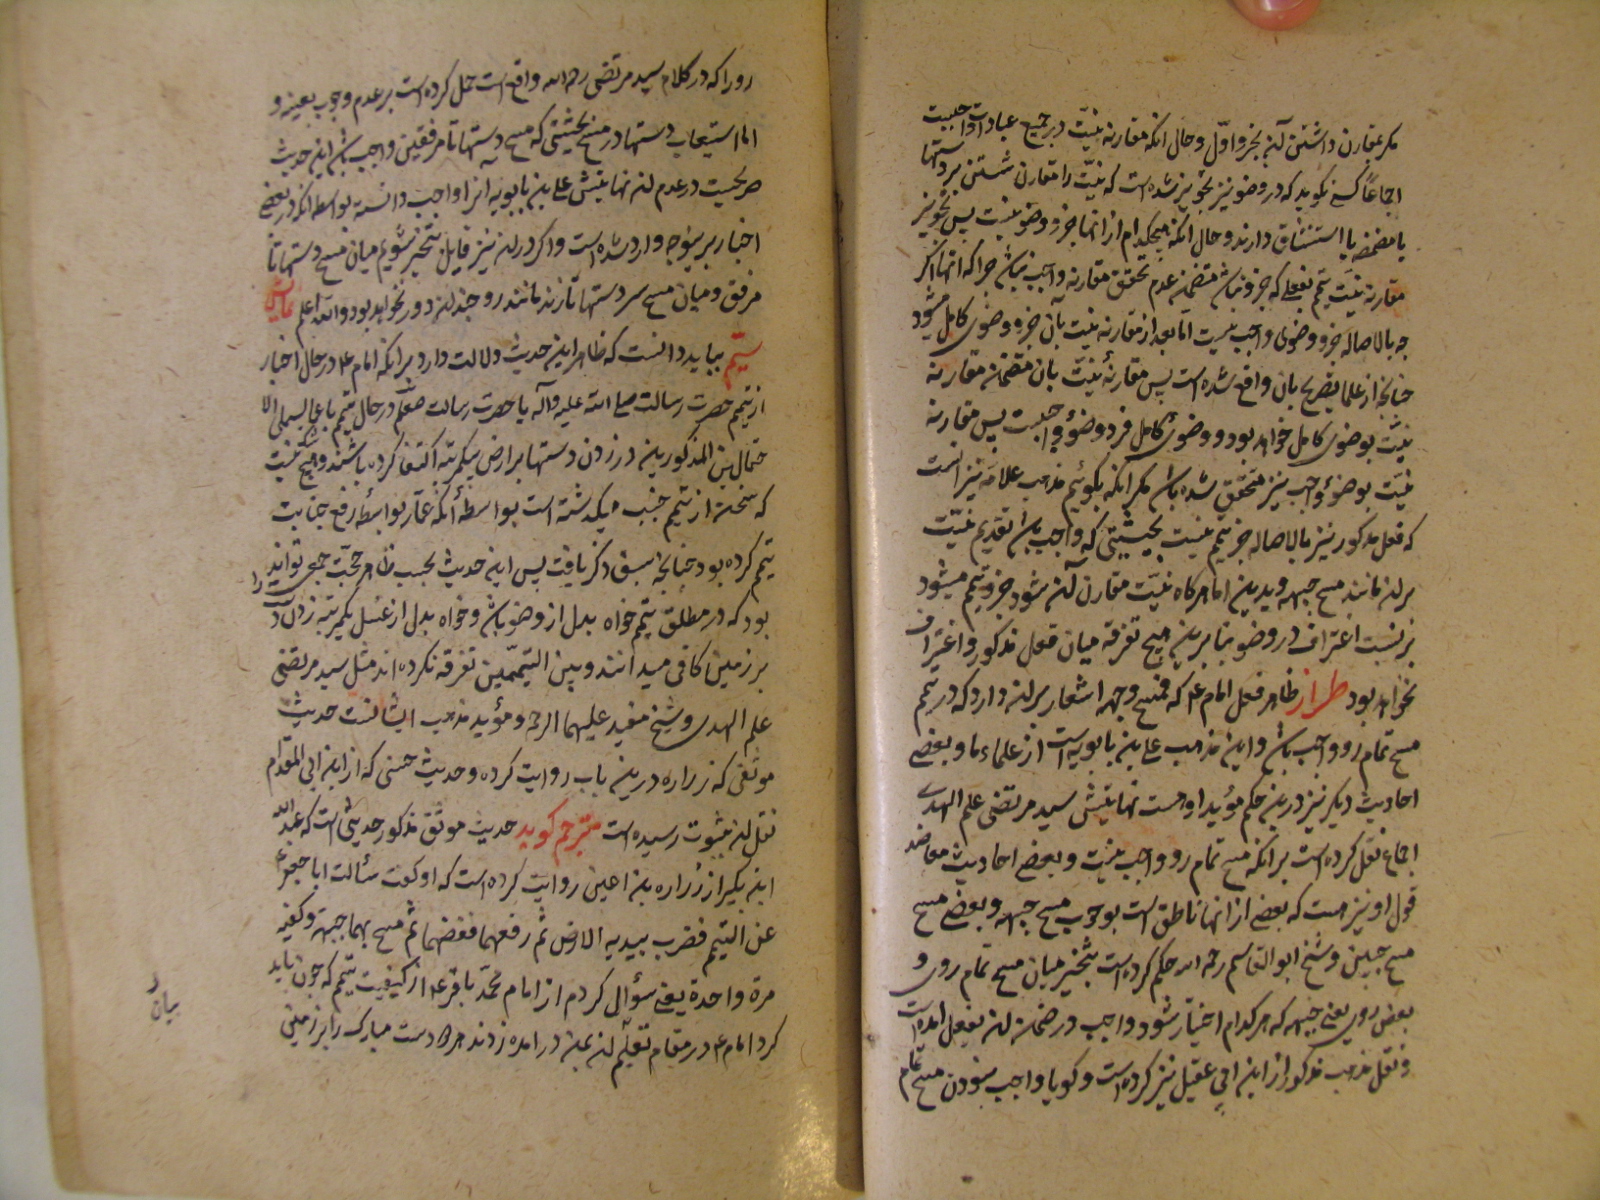 مکر مقارن داشتن آن بجزو اوّل وحال انکه مقارنه نیّت در جمیع عبادات واجبست
اجماعاً کسی نکوید که در وضو نیز تجویز شده است که نیّت را مقارن شستن دستها
یا مضمضه یا استنشاق دارند وحال انکه هیچکدام از انها جزو وضو نیست پس تجویز
مقارنه نیّت تیمّم بفعلی که جزو نباشد متضمّن عدم تحقق مقارنه واجب نباشد چرا که انها اکر
چه بالاصاله جزو وضوی واجب نیست امّا بعد از مقارنه نیّت بآن جزو وضوی کامل میشود
چنانچه از علما تصریح بان واقع شده است پس مقارنهٔ نیّت بان متضمّن مقارنه
نیّت بوضوی کامل خواهد بود و وضوی کامل فرد وضوء واجبست پس مقارنه
نیّت بوضوء واجب نیز متحقق شده باشد مکر انکه بکوئیم مذهب علامه نیز انست
که فعل مذکور نیز بالاصاله جزو تیمّم نیست بحیثیتی که واجب باشد تقدیم نیّت
برآن مانند مسح جبهه ویدین اما هرکاه نیّت مقارن آن شود جزو تیمّم میشود
بر نسبت اعتراف در وضو بنابرین هیچ تفرقه میان فعل مذکور واغتراف
نخواهد بود طراز ظاهر فعل امام ع که فمسح وجهه اشعار برآن دارد که در تیمم
مسح تمام رو واجب باشد واین مذهب علی بن بابویه است از علماء ما وبعضی
احادیث دیکر نیز درین حکم مؤید اوست نهایتش سید مرتضی علم الهدی
اجماع نقل کرده است برانکه مسح تمام رو واجب نیست وبعضی احادیث معاضد
قول او نیز هست که بعضی از انها ناطق است بوجوب مسح جبهه وبعضی مسح
مسح جبین وشیخ ابو القاسم رحمه الله حکم کرده است بتخییر میان مسح تمام روی و
بعض روی یعنی جبهه که هرکدام اختیار شود واجب در ضمن آن بفعل امده است
ونقل مذهب مذکور از ابن ابی عقیل نیز کرده است وکویا واجب نبودن مسح تمام
رو را که در کلام سید مرتضی رحمه الله واقع است حمل کرده است بر عدم وجوب بعینه و
اما استیعاب دستها در مسح بحیثیتی که مسح دستها تا مرفقین واجب باشد این حدیث
صریحست در عدم آن نهایتش علی بن بابویه انرا واجب دانسته بواسطه انکه در بعضی
اخبار برینوجه وارد شده است واکر درآن نیز قایل بتخییر شویم میان مسح دستها تا
مرفق ومیان مسح سر دستها تا زند مانند رو چندان دور نخواهد بود والله اعلم نمایش
ستم بباید دانست که ظاهر این حدیث دلالت دارد برانکه امام ع در حال اخبار
از تیمم حضرت رسالت صلی الله علیه وآله یا حضرت رسالت صلعم در حال تیمم باعمار علی الا
حتمالین المذکورین در زدن دستها بر ارض بیکمرتبه اکتفا کرده باشند وهیچ شک نیست
که سخن از تیمم جنب میکذشته است بواسطه انکه عمار بواسطه رفع جنابت
تیمم کرده بود چنانچه سبق ذکر یافت پس این حدیث بحسب ظاهر حجّت جمعی تواند
بود که در مطلق تیمم خواه بدل از وضو باشد وخواه بدل از غسل یکمرتبه زدن دست را
بر زمین کافی میدانند وبین التیممین تفرقه نکرده اند مثل سید مرتضی
علم الهدی وشیخ مفید علیهما الرحمه ومؤید مذهب ایشانست حدیث
موثقی که زراره درین باب روایت کرده وحدیث حسنی که از ابن ابی المقدام
نقل آن بثبوت رسیده است مترجم کوید حدیث موثق مذکور حدیثی است که عبدالله
ابن بکیر از زراره بن اعین روایت کرده است که او کفت سألت ابا جعفر ع
عن التیمم فضرب بیدیه الارض ثم رفعهما فنفضهما ثم مسح بهما جبهته وکفیه
مرة واحدة یعنی سؤال کردم از امام محمد باقر ع از کیفیت تیمم که چون باید
کرد امام ع در مقام تعلیم آن بمن درامده زدند هردو دست مبارک را بر زمین
بیان